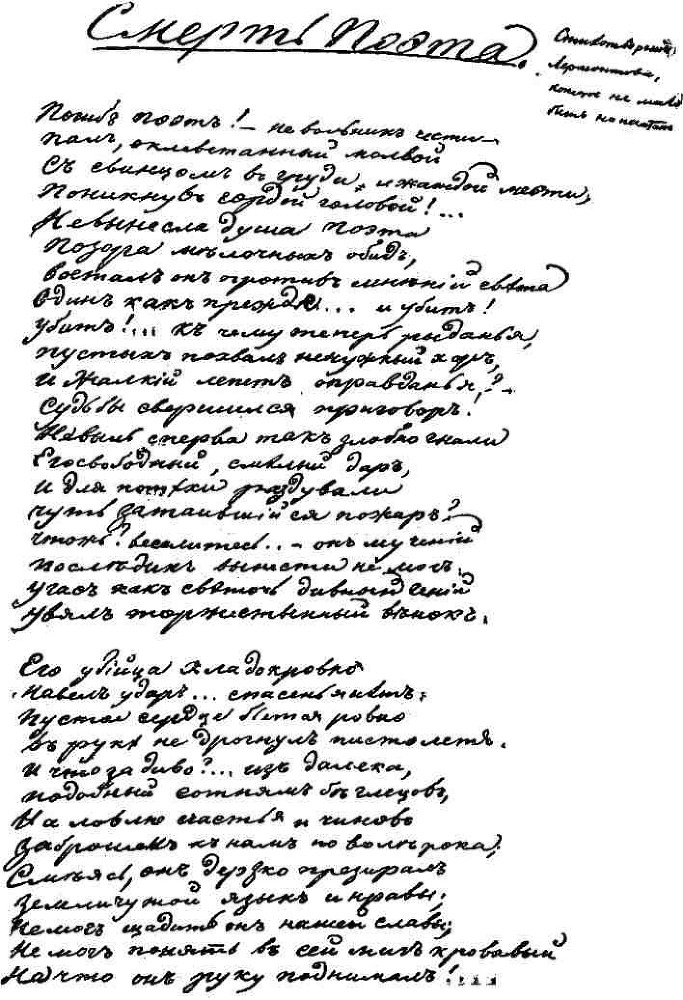 Смерть Поэта.
Стихотвореніе
Лермонтова,
которое не можетъ
быть напечатано
Погибъ поэтъ! — невольникъ чести —
палъ, оклеветанный молвой
Съ свинцомъ въ груди и жаждой мести,
Поникнувъ гордой головой!...
Не вынесла душа поэта
Позора мѣлочныхъ обидъ,
возсталъ онъ противъ мнѣній свѣта
Одинъ какъ прежде... и убитъ!
убитъ!... къ чему теперь рыданья,
пустыхъ похвалъ ненужный хоръ,
И жалкій лепетъ оправданья,? —
Судьбы свершился приговоръ!
Не вы ль сперва такъ злобно гнали
Его свободный, смѣлый даръ,
И для потѣхи раздували
чуть затаившійся пожаръ? —
чтожъ? веселитесь... — онъ мученій
послѣднихъ вынести не могъ,
угасъ какъ свѣточь дивный геній
увялъ торжественный вѣнокъ.
Его убійца хладокровно
навелъ ударъ... спасенья нѣтъ:
Пустое сердце бьется ровно
въ рукѣ не дрогнулъ пистолетъ.
И что за диво?... изъ далека,
подобный сотнямъ бѣглецовъ,
На ловлю счастья и чиновъ
заброшенъ къ намъ по волѣ рока;
Смѣясь, онъ дерзко презиралъ
земли чужой языкъ и нравы;
Не могъ щадить онъ нашей славы;
Не могъ понять въ сей мигъ кровавый
На что онъ руку поднималъ!...